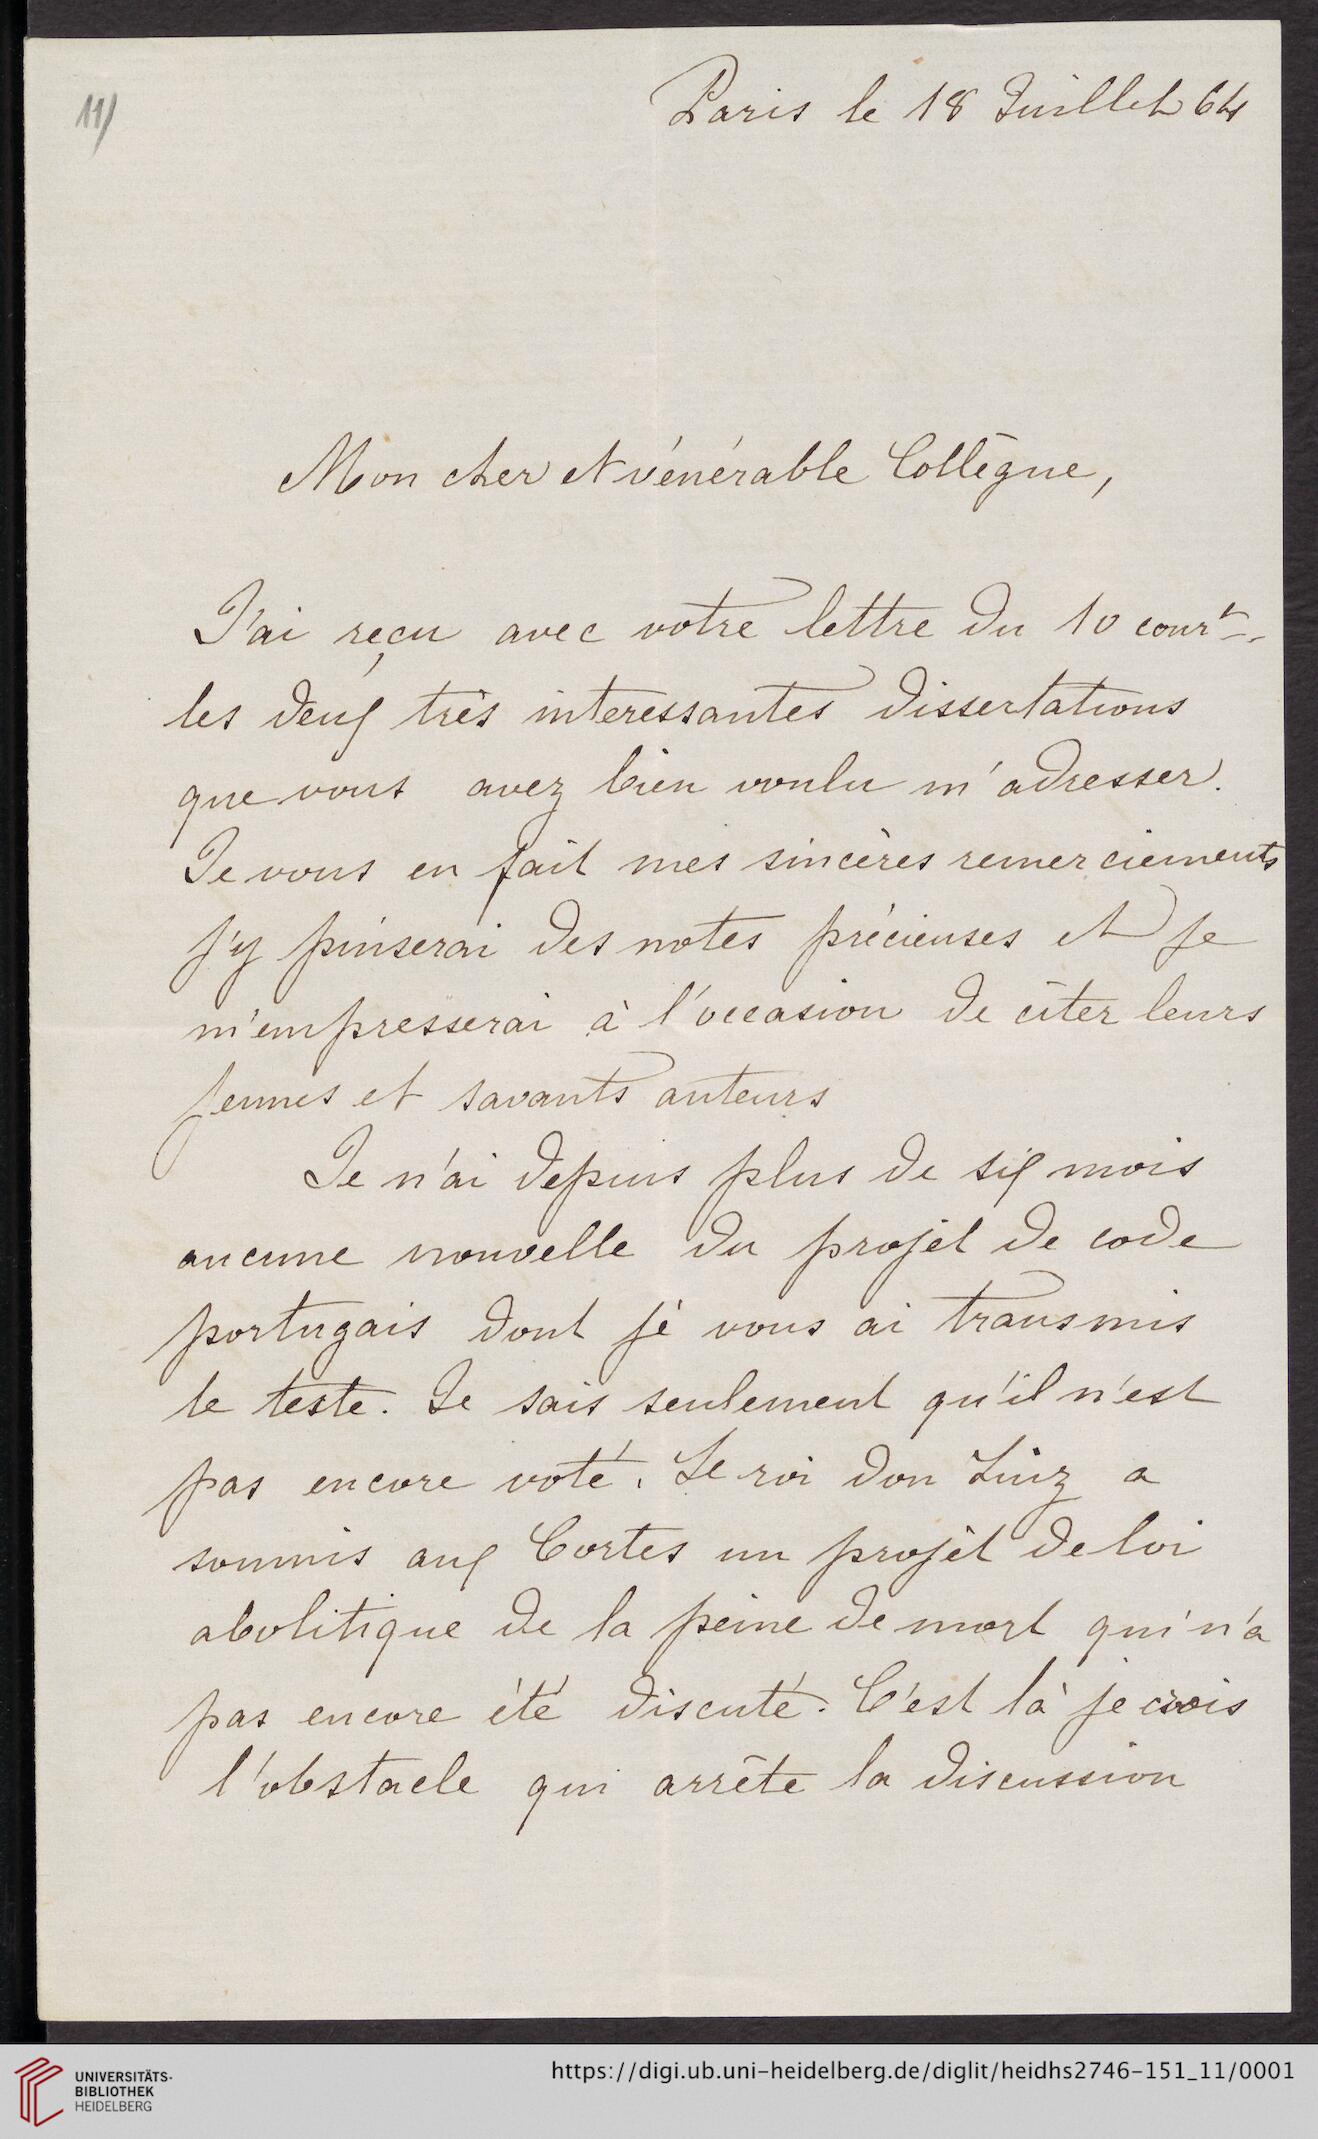 11)
Paris le 18 Juillet 64
Mon cher et vénérable Collègue,
J'ai reçu avec votre lettre du 10 cour^t.
les deux très interessantes dissertations
que vous avez bien voulu m'adresser.
Je vous en fait mes sincères remerciements
j'y puiserai des notes précieuses et je
m'empresserai à l'occasion de citer leurs
jeunes et savants auteurs
Je n'ai depuis plus de six mois
aucune nouvelle du projet de code
portugais dont je vous ai transmis
le teste. Je sais seulement qu'il n'est
pas encore voté. Le roi don Luiz a
soumis aux Cortes un projet de loi
abolitique de la peine de mort qui n'a
pas encore été discuté. C'est là je crois
l'obstacle qui arrête la discussion
UNIVERSITÄTS-
BIBLIOTHEK
HEIDELBERG
https://digi.ub.uni-heidelberg.de/diglit/heidhs2746-151_11/0001